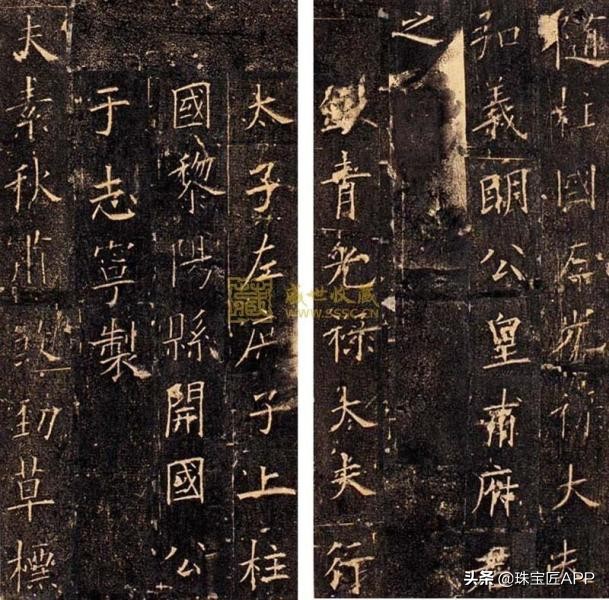 隨柱國左光祿大夫
弘義明公皇甫府君
之
銀青光祿大夫行
太子左庶子上柱
國黎陽縣開國公
于志寧製
夫素秋肅煞勁草標
藏 盛世收藏
WWW.SSSC.CN
头条 @珠宝匠APP